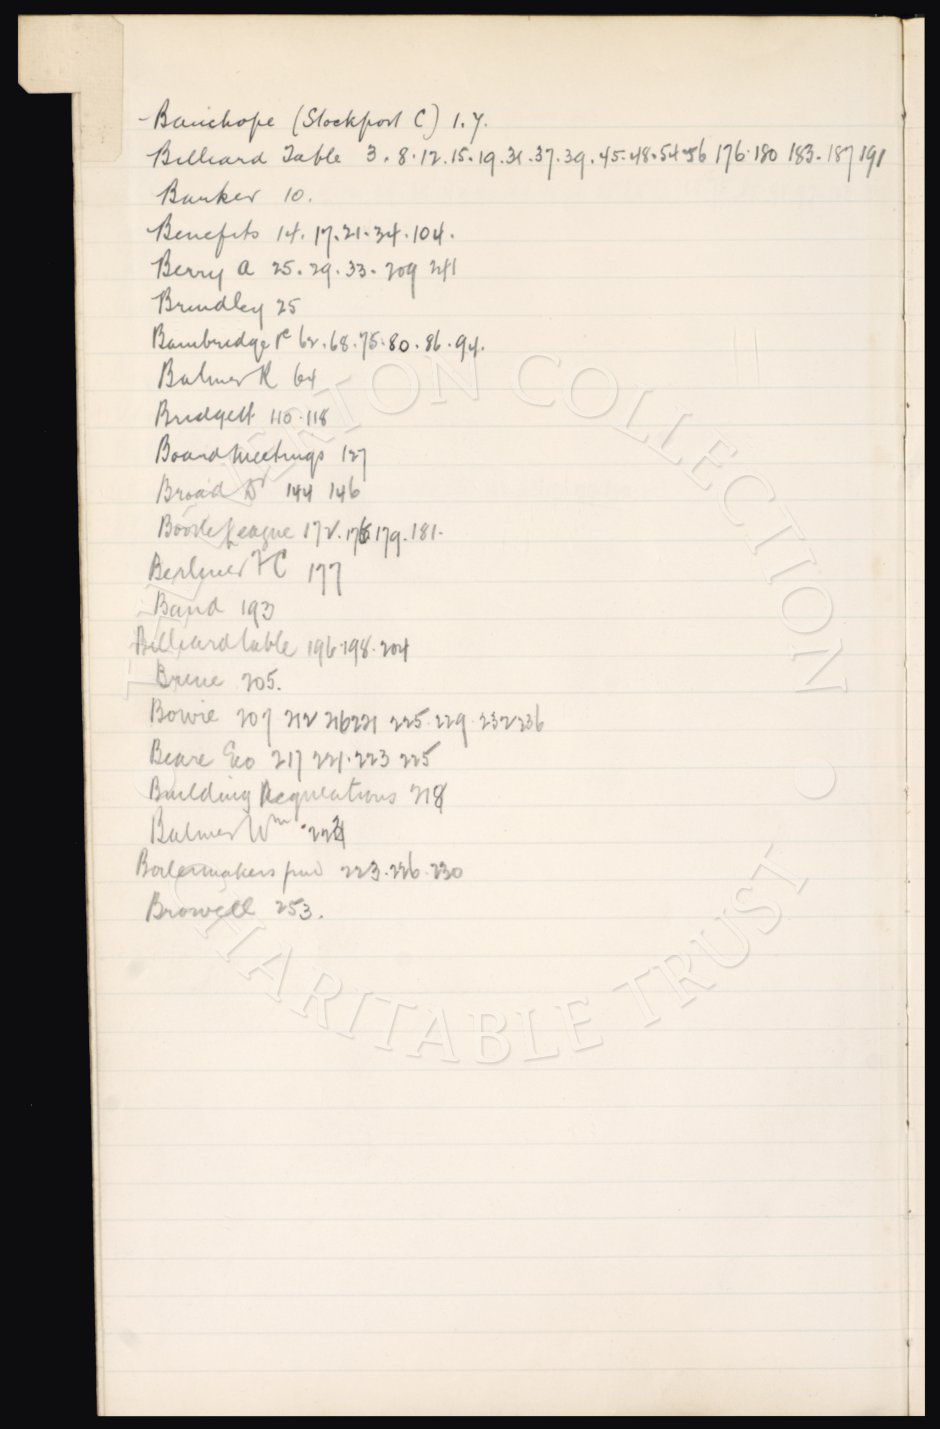 Bauchope (Stockport C) 1. 7.
Billiard Table 3. 8. 12. 15. 19. 31. 37. 39. 45. 48. 54 56 176. 180 183. 187 191
Banker 10.
Benefits 14. 17. 21. 34. 104.
Berry A 25. 29. 33. 209 241
Brindley 25
Bambridge 62. 68. 75. 80. 86. 94.
Balmer R 64
Bridgett 118
Board Meetings 127
Broad Dr 144 146
Bootle League 172. 179. 181.
Berliner FC 177
Band 193
Billiard table 196. 198. 204
205.
Bowie 207 212 216 221 225. 229. 232 236
Beare Geo 217 221. 223 225
Building Regulations 218
Balmer Wm
Boilermakers fund 223. 226. 230
Browell 253.
THE EVERTON COLLECTION
CHARITABLE TRUST